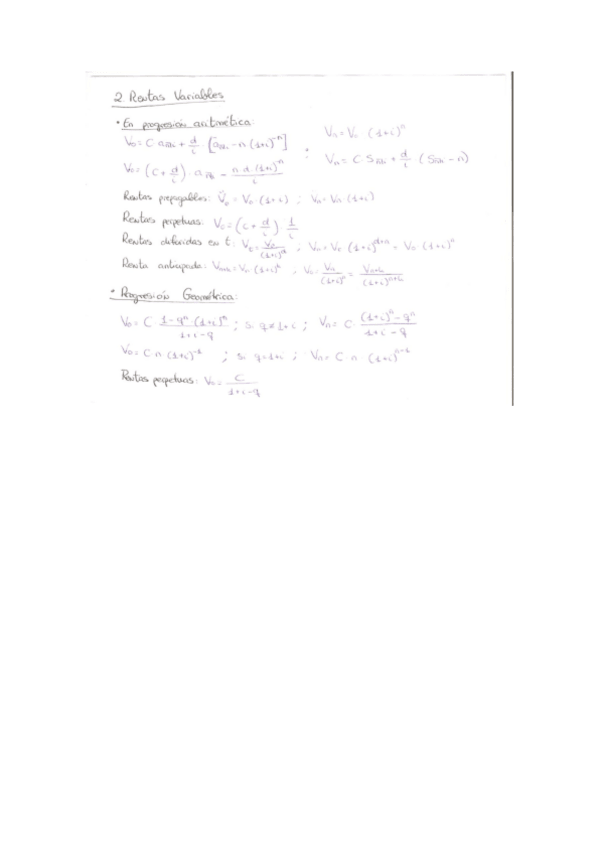 2. Rentas Variables
• En progresión aritmética:
V₀ = C · aₙ¬ᵢ + d/i · [aₙ¬ᵢ - n (1+i)⁻ⁿ] ; Vₙ = V₀ (1+i)ⁿ
V₀ = (C + d/i) · aₙ¬ᵢ - n·d·(1+i)⁻ⁿ/i ; Vₙ = C · Sₙ¬ᵢ + d/i · (Sₙ¬ᵢ - n)
Rentas prepagables: V̈₀ = V₀ · (1+i) ; V̈ₙ = Vₙ · (1+i)
Rentas perpetuas: V₀ = (C + d/i) · 1/i
Rentas diferidas en t:
Renta anticipada:
• Progresión Geométrica:
V₀ = C · 1-qⁿ (1+i)ⁿ/1+i-q ; Si q≠1+i ; Vₙ = C · (1+i)ⁿ-qⁿ/1+i-q
V₀ = C·n (1+i)⁻¹ ; Si q=1+i ; Vₙ = C · n · (1+i)ⁿ⁻¹
Rentas perpetuas: V₀ = C/1+i-q